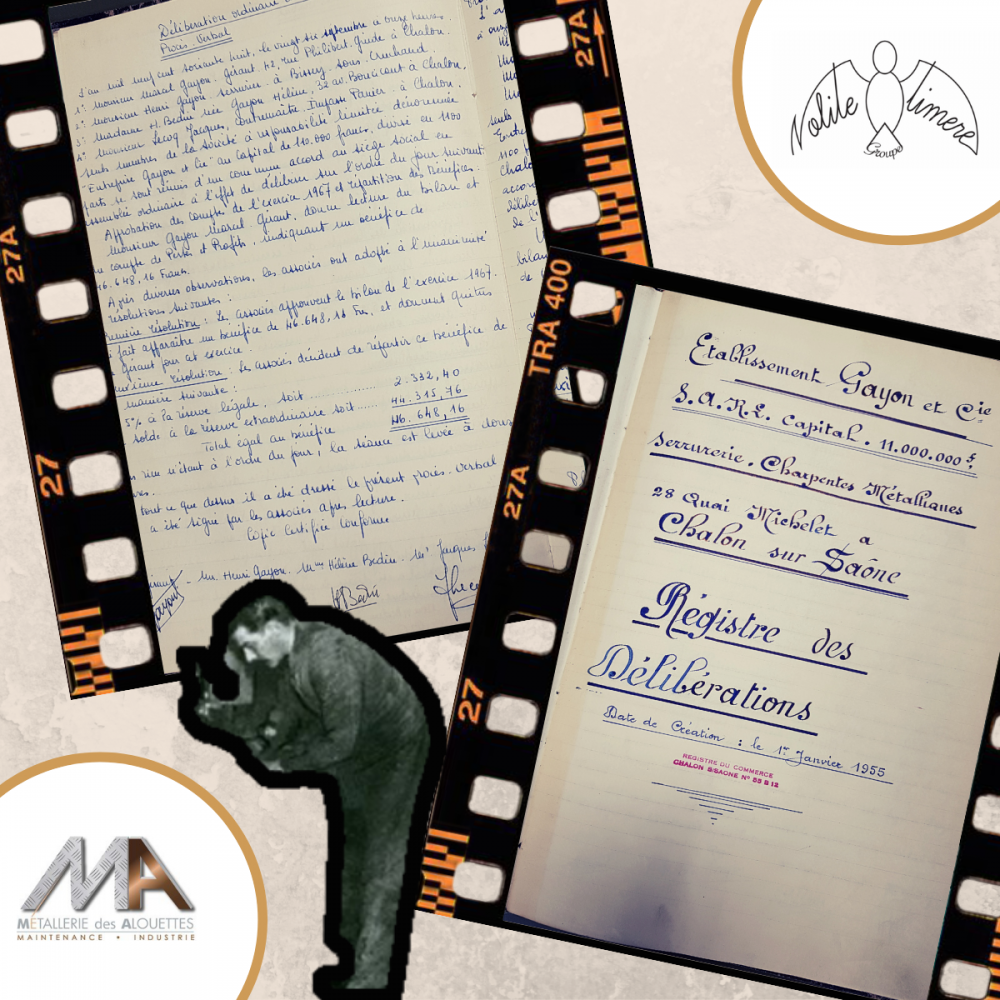 Délibération ordinaire
Procès-Verbal
L'an mil neuf cent soixante huit, le vingt six septembre à onze heures
1° Monsieur Marcel Gayon, Gérant, 42, rue Philibert Guide à Chalon.
2° Monsieur Henri Gayon, serrurier à Bissey sous Cruchaud.
3° Madame H. Bedin née Gayon Hélène, 32 av. Boucicaut à Chalon,
4° Monsieur Lecoq Jacques, Contremaître, Impasse Panier à Chalon,
membres de la Société à responsabilité limitée dénommée
"Entreprise Gayon et Cie" au Capital de 110.000 francs, divisé en 1100
parts se sont réunis d'un commun accord au siège social en
assemblée ordinaire à l'effet de délibérer sur l'ordre du jour suivant
Approbation des comptes de l'exercice 1967 et répartition des Bénéfices.
Monsieur Gayon Marcel Gérant, donne lecture du bilan et
compte de Pertes et Profits, indiquant un bénéfice de
46.648,16 Francs.
Après diverses observations, les associés ont adopté à l'unanimité
résolutions suivantes :
résolution : Les associés approuvent le bilan de l'exercice 1967.
fait apparaître un bénéfice de 46.648,16 Frs, et donnent quitus
gérant pour cet exercice.
résolution : les associés décident de répartir ce bénéfice de
manière suivante :
5% à la réserve légale, soit .......... 2.332,40
solde à la réserve extraordinaire soit ..... 44.315,76
Total égal au bénéfice 46.648,16
rien n'étant à l'ordre du jour, la séance est levée à douze
tout ce que dessus il a été dressé le présent procès-verbal
a été signé par les associés après lecture.
Copie Certifiée Conforme
Mr. Henri Gayon. Mme Hélène Bedin. Mr Jacques
HBedin
27A
27
27A
TRA 400
27A
27
Nolite timere
Groupe
Etablissement Gayon et Cie
S.A.R.L. Capital. 11.000.000 f.
Serrurerie. Charpentes Métalliques
28 Quai Michelet à
Chalon sur Saône
Régistre des
Délibérations
Date de Création : le 1er Janvier 1955
REGISTRE DU COMMERCE
CHALON S/SAONE N° 55 B 12
MA
MÉTALLERIE des ALOUETTES
MAINTENANCE • INDUSTRIE